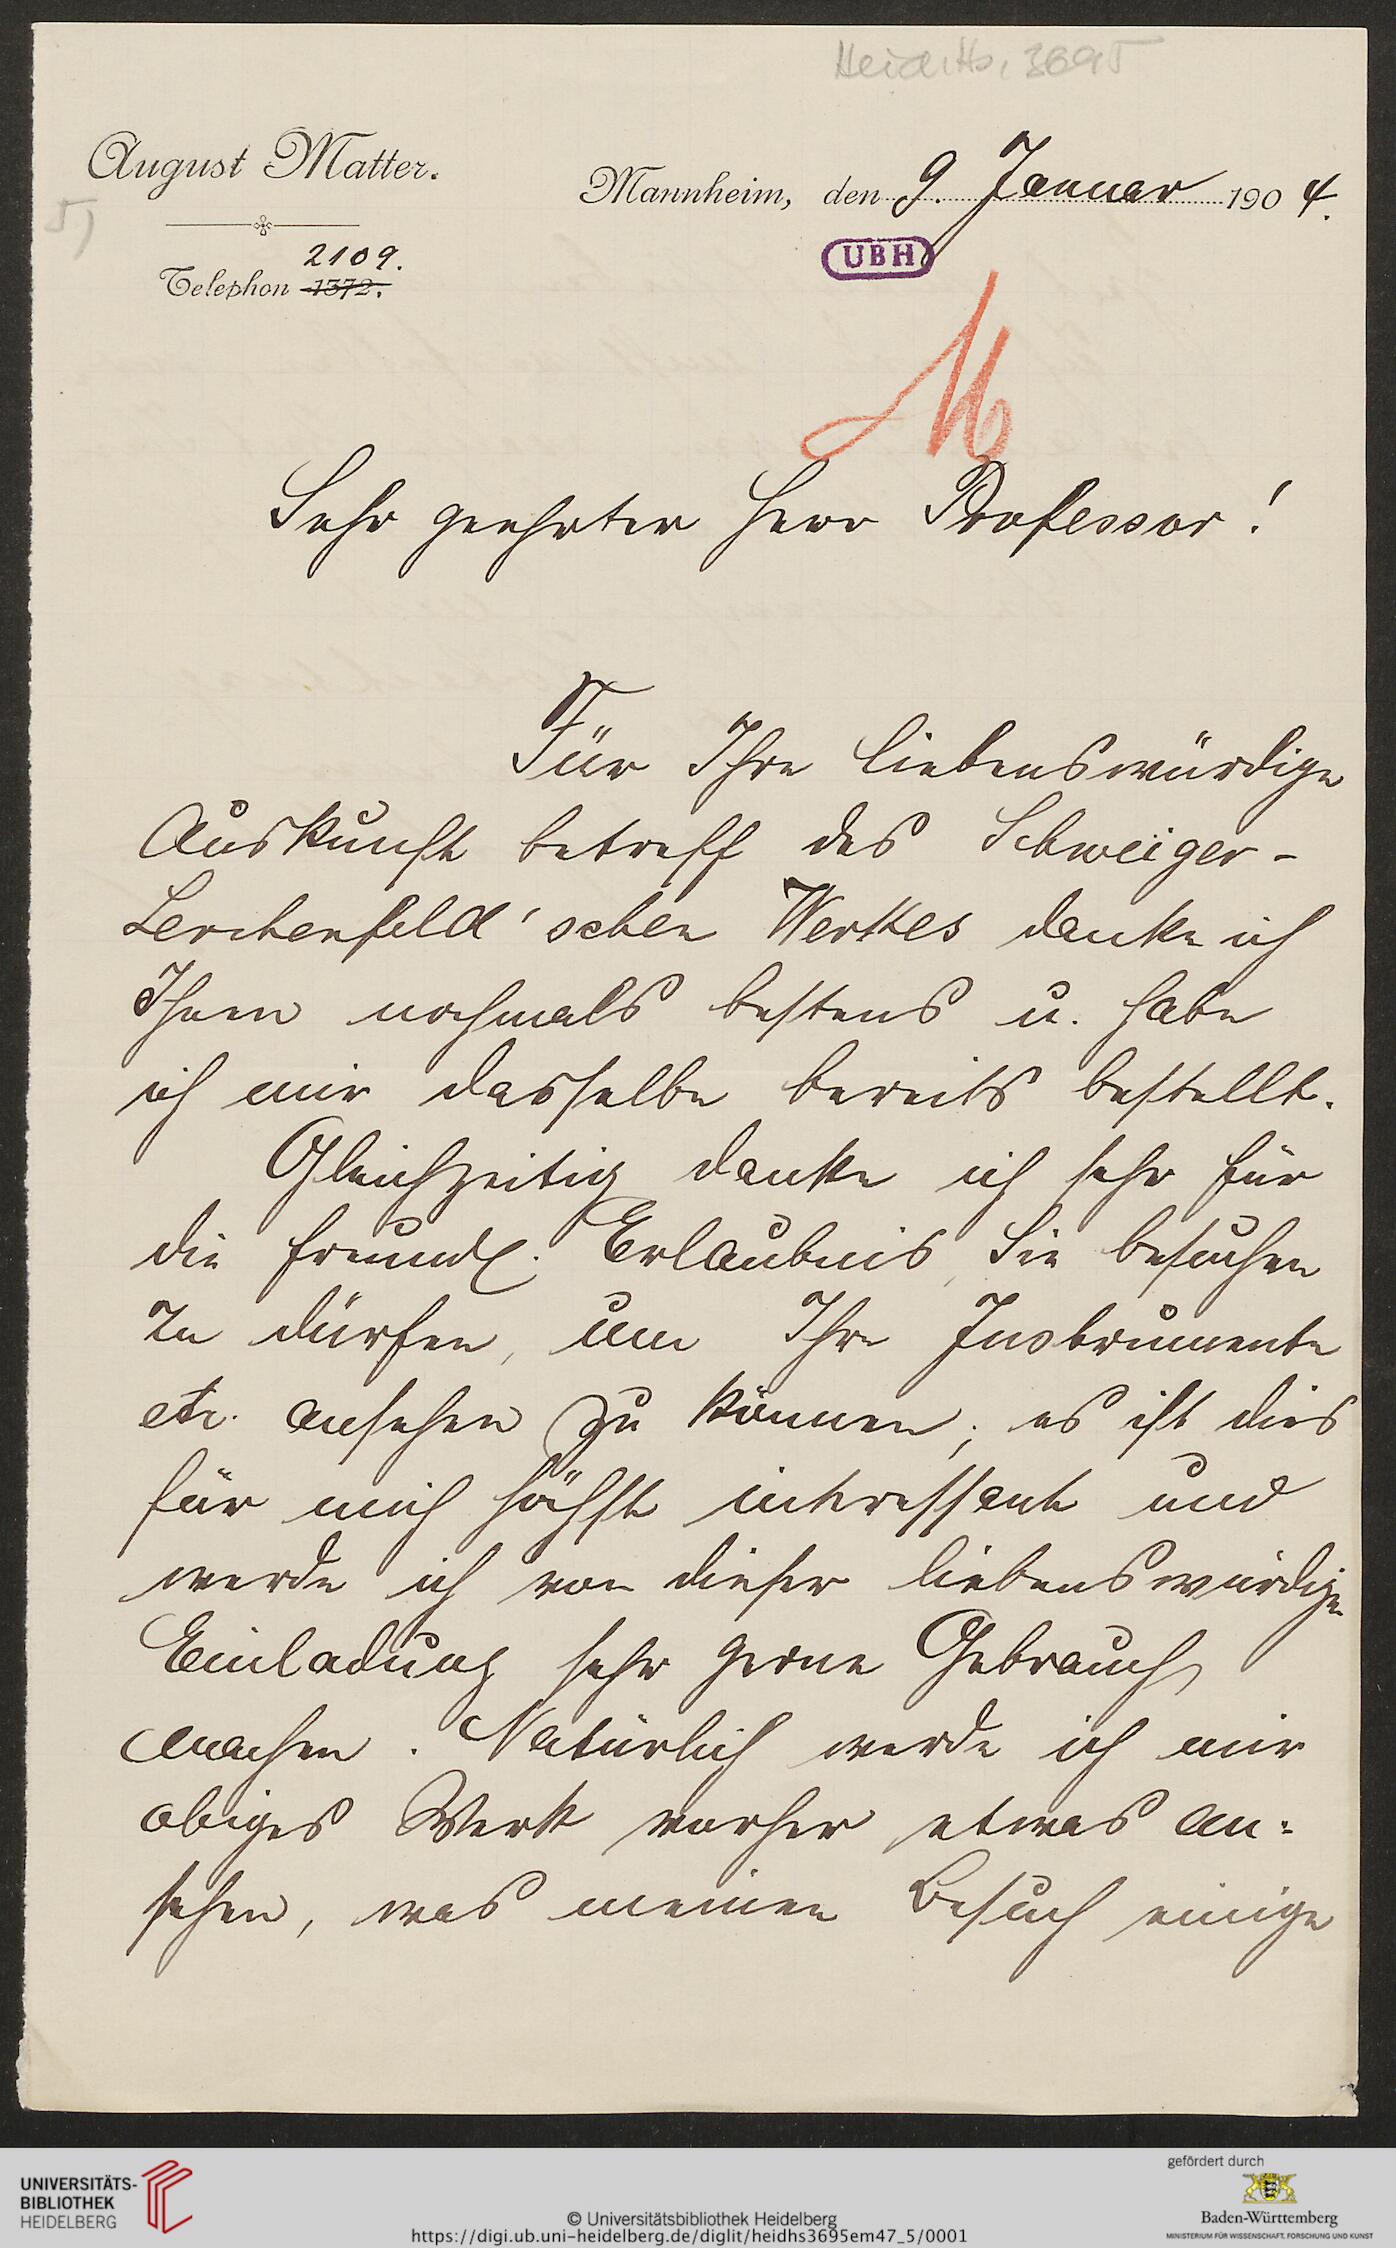 Heid. Hs. 3695
August Matter.
Mannheim, den 9. Januar 1904.
5)
UBH
2109.
Telephon 1372.
M
Sehr geehrter Herr Professor!
Für Ihre liebenswürdige
Auskunft betreff des Schweiger-
Lerchenfeld'schen Werkes danke ich
Ihnen nochmals bestens u. habe
ich mir dasselbe bereits bestellt.
Gleichzeitig danke ich sehr für
die freundl. Erlaubnis, Sie besuchen
zu dürfen, um Ihre Instrumente
etc. ansehen zu können; es ist dies
für mich höchst interessant und
werde ich von dieser liebenswürdigen
Einladung sehr gerne Gebrauch
machen. Natürlich werde ich mir
obiges Werk vorher etwas an-
sehen, was meinen Besuch einige
UNIVERSITÄTS-
BIBLIOTHEK
HEIDELBERG
© Universitätsbibliothek Heidelberg
https://digi.ub.uni-heidelberg.de/diglit/heidhs3695em47_5/0001
gefördert durch
Baden-Württemberg
MINISTERIUM FÜR WISSENSCHAFT, FORSCHUNG UND KUNST